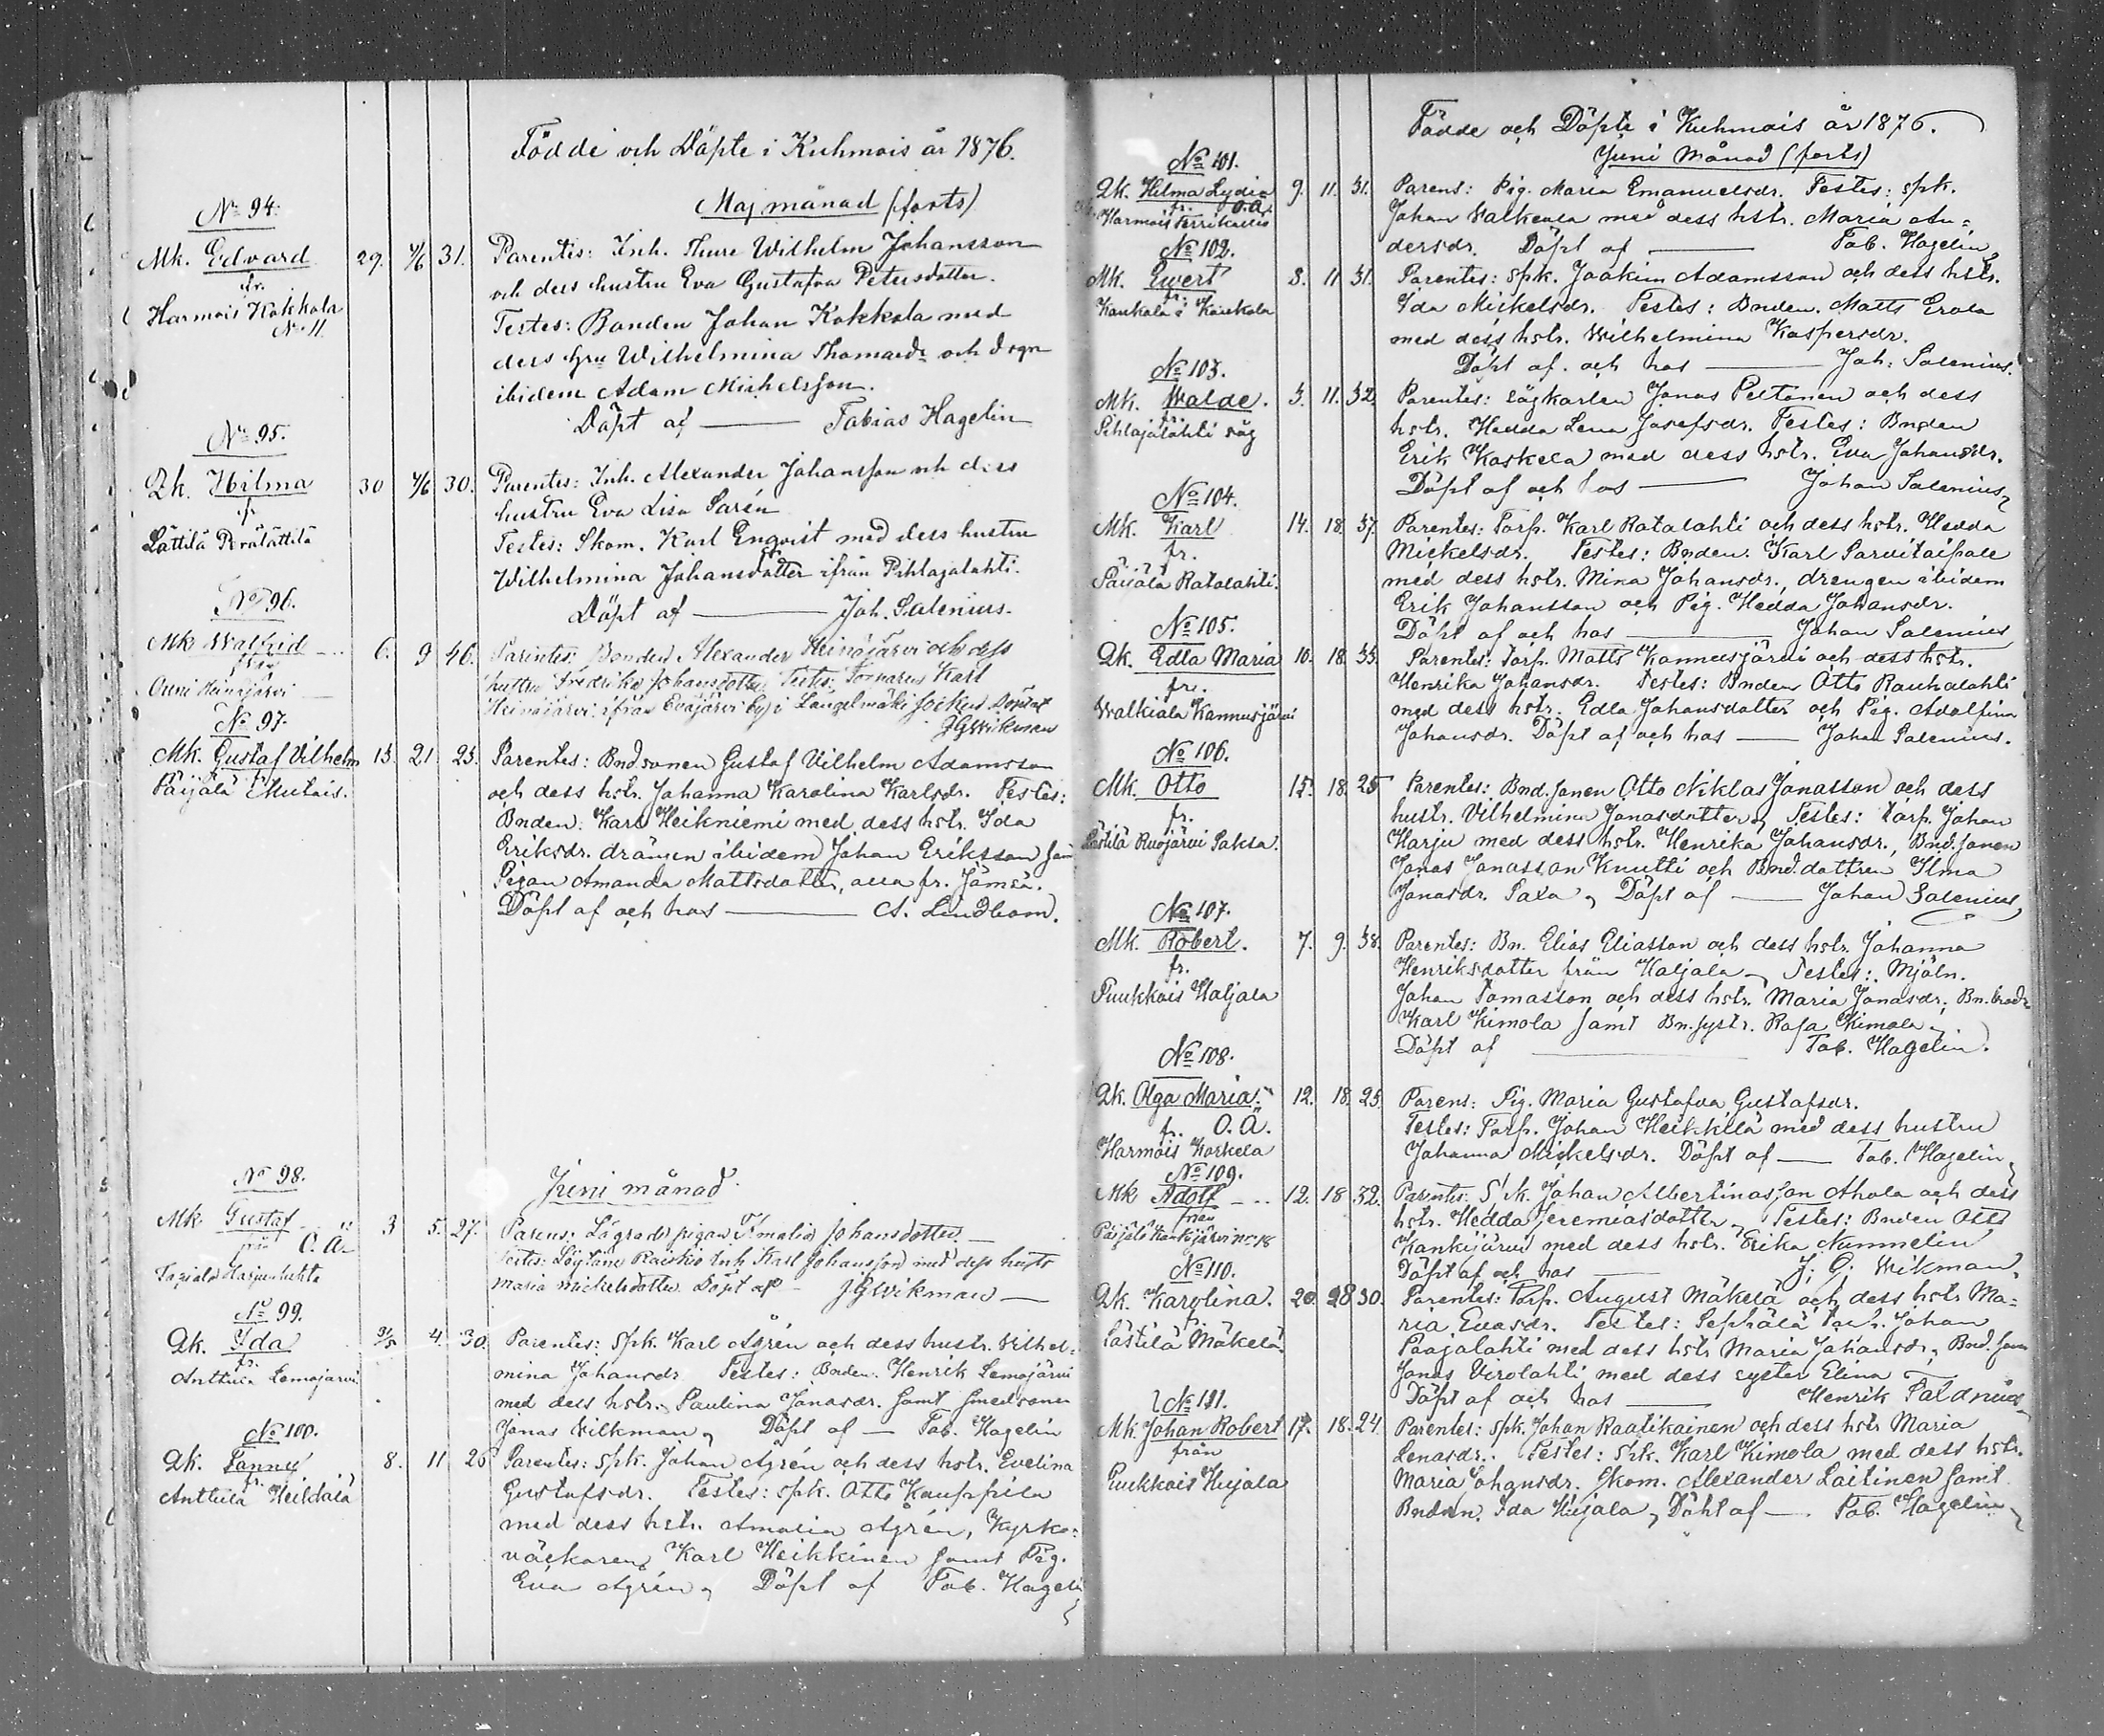 Födde och Döpte i Kuhmois år 1876.
Maj månad (forts)
No 94.
Mk. Edvard 29. 4/6 31.
fr.
Harmois Kokkola
No 11.
Parentes: Inh. Thure Wilhelm Johansson
och dess hustru Eva Gustafva Petersdotter.
Testes: Bonden Johan Kokkola med
dess hru Wilhelmina Thomasdr och drgn
ibidem Adam Michelsson.
Döpt af — Tobias Hagelin
No 95.
Qk. Hilma 30 4/6 30.
fr.
Lättilä Perälättilä
Parentes: Inh. Alexander Johansson och dess
hustru Eva Lisa Sarén
Testes: Skom. Karl Enqvist med dess hustru
Wilhelmina Johansdotter ifrån Pihlajalahti.
Döpt af — Joh. Salenius.
No 96.
Mk Walfrid 6. 9 46.
från
Ouni Heinäjärvi
Parentes: Bonden Alexander Heinäjärvi och dess
hustru Fredrika Johansdotter Testes: Karl
Heinäjärvi ifrån Eväjärvi by i Längelmäki Socken Döpt af
JGWikman
No 97.
Mk. Gustaf Vilhelm 13. 21 23.
Päijälä Mutais.
Parentes: Bndsonen Gustaf Vilhelm Adamsson
och dess hstr. Johanna Karolina Karlsdr. Testes:
Bnden: Karl Heikniemi med dess hstr. Ida
Eriksdr. drängen ibidem Johan Eriksson samt
Pigan Amanda Mattsdotter, alla fr. Jämsä.
Döpt af och hos — A. Lindbom.
Juni månad
No 98.
Mk Gustaf 3 5. 27.
från O. Ä.
Harjunlahti
Parens: pigan Amalia Johansdotter
Testes: Inh Karl Johansson med dess hustr
Maria Mickelsdotter Döpt af — JGWikman —
No 99.
Qk. Ida 31/5 4. 30.
fr.
Anttila Lemojärvi
Parentes: Spk. Karl Ågrén och dess hustr. Vilhel-
mina Johansdr. Testes: Bnden. Henrik Lemojärvi
med dess hstr. Paulina Jonasdr. samt smedsonen
Jonas Vilkman, Döpt af — Tob. Hagelin
No 100.
Qk. Fanny 8. 11 26
fr.
Anttila Heildalä
Parentes: Spk. Johan Ågrén och dess hstr. Evelina
Gustafsdr. Testes: Spk. Otto Kauppila
med dess hstr. Amalia Ågrén, Kyrko-
väckaren Karl Heikkinen samt Pig.
Eva Ågrén, Döpt af Tob. Hagelin
Födde och Döpte i Kuhmois år 1876.
Juni månad (forts)
No 101.
Qk. Hilma Lydia 9. 11. 31.
fr. O.Ä.
Harmois
Parens: Pig. Maria Emanuelsdr. Testes: Spk.
Johan Valkeala med dess hstr. Maria An-
dersdr. Döpt af — Tob. Hagelin
No 102.
Mk. Evert 3. 11 31.
fr.
Kaukola i Kaukola
Parentes: Spk. Joakim Adamsson och dess hstr.
Ida Mickelsdr. Testes: Bnden. Matts Erola
med dess hstr. Wilhelmina Kaspersdr.
Döpt af och hos — Joh. Salenius.
No 103.
Mk. Walde. 3. 11. 32.
fr.
Pihlajalahti såg
Parentes: sågkarlen Jonas Peltonen och dess
hstr. Hedda Lena Josefsdr. Testes: Bnden
Erik Koskela med dess hstr. Eva Johansdr.
Döpt af och hos — Johan Salenius
No 104.
Mk. Karl 14. 18. 37.
fr.
Päijälä Ratalahti.
Parentes: Torp. Karl Ratalahti och dess hstr. Hedda
Mickelsdr. Testes: Bnden. Karl Sarvitaipale
med dess hstr. Mina Johansdr., drengen ibidem
Erik Johansson och Pig. Hedda Johansdr.
Döpt af och hos — Johan Salenius
No 105.
Qk. Edla Maria 10. 18. 33.
fr.
Walkiala Kannusjärvi
Parentes: Torp. Matts Kannusjärvi och dess hstr.
Henrika Johansdr. Testes: Bnden Otto Rauhalahti
med dess hstr. Edla Johansdotter och Pig. Adolfina
Johansdr. Döpt af och hos — Johan Salenius.
No 106.
Mk. Otto 15. 18. 25
fr.
Lästilä Ruojärvi Saksa.
Parentes: Bnd.sonen Otto Niklas Jonasson och dess
hustr. Vilhelmina Jonasdotter, Testes: torp. Johan
Harju med dess hstr. Henrika Johansdr., Bnd.sonen
Jonas Jonasson Knutti och Bnd.dottren Ilma
Jonasdr. Saxa, Döpt af — Johan Salenius
No 107.
Mk. Robert. 7. 9. 38.
fr.
Puukkois Haljala
Parentes: Bn. Elias Eliasson och dess hstr. Johanna
Henriksdotter från Haljala, Testes: Mjöln.
Johan Tomasson och dess hstr. Maria Jonasdr. Bn.brodr
Karl Kimola samt Bn.systr. Rosa Kimola
Döpt af — Tob. Hagelin.
No 108.
Qk. Olga Maria. 12. 18. 25.
fr. O.Ä.
Harmois Korkela
Parens: Pig. Maria Gustafva Gustafsdr.
Testes: Torp. Johan Heikkilä med dess hustru
Johanna Mickelsdr. Döpt af — Tob. Hagelin
No 109.
Mk Adolf 12. 18 32.
från
Päijälä Kankijärvi No 18
Parentes: Johan Albertinasson Ahola och dess
hstr. Hedda Jeremiasdotter, Testes: Bnden Otto
Kankijärvi med dess hstr. Erika Nummelin
Döpt af och hos — J. G. Wikman.
No 110.
Qk. Karolina. 20. 28 30.
fr.
Lästilä Mäkelä
Parentes: Torp. August Mäkelä och dess hstr Ma-
ria Evasdr. Testes: Seppälä torp. Johan
Paajalahti med dess hstr Maria Johansdr, Bnd.sonen
Jonas Virolahti med dess syster Elina
Döpt af och hos — Henrik Paldanius
No 111.
Mk. Johan Robert 17. 18. 24.
från
Puukkois Hujala
Parentes: Spk. Johan Raatikainen och dess hstr Maria
Lenasdr. Testes: Spk. Karl Kimola med dess hstr.
Maria Johansdr. Skom. Alexander Laitinen samt
Bndvn. Ida Hujala, Döpt af — Tob. Hagelin